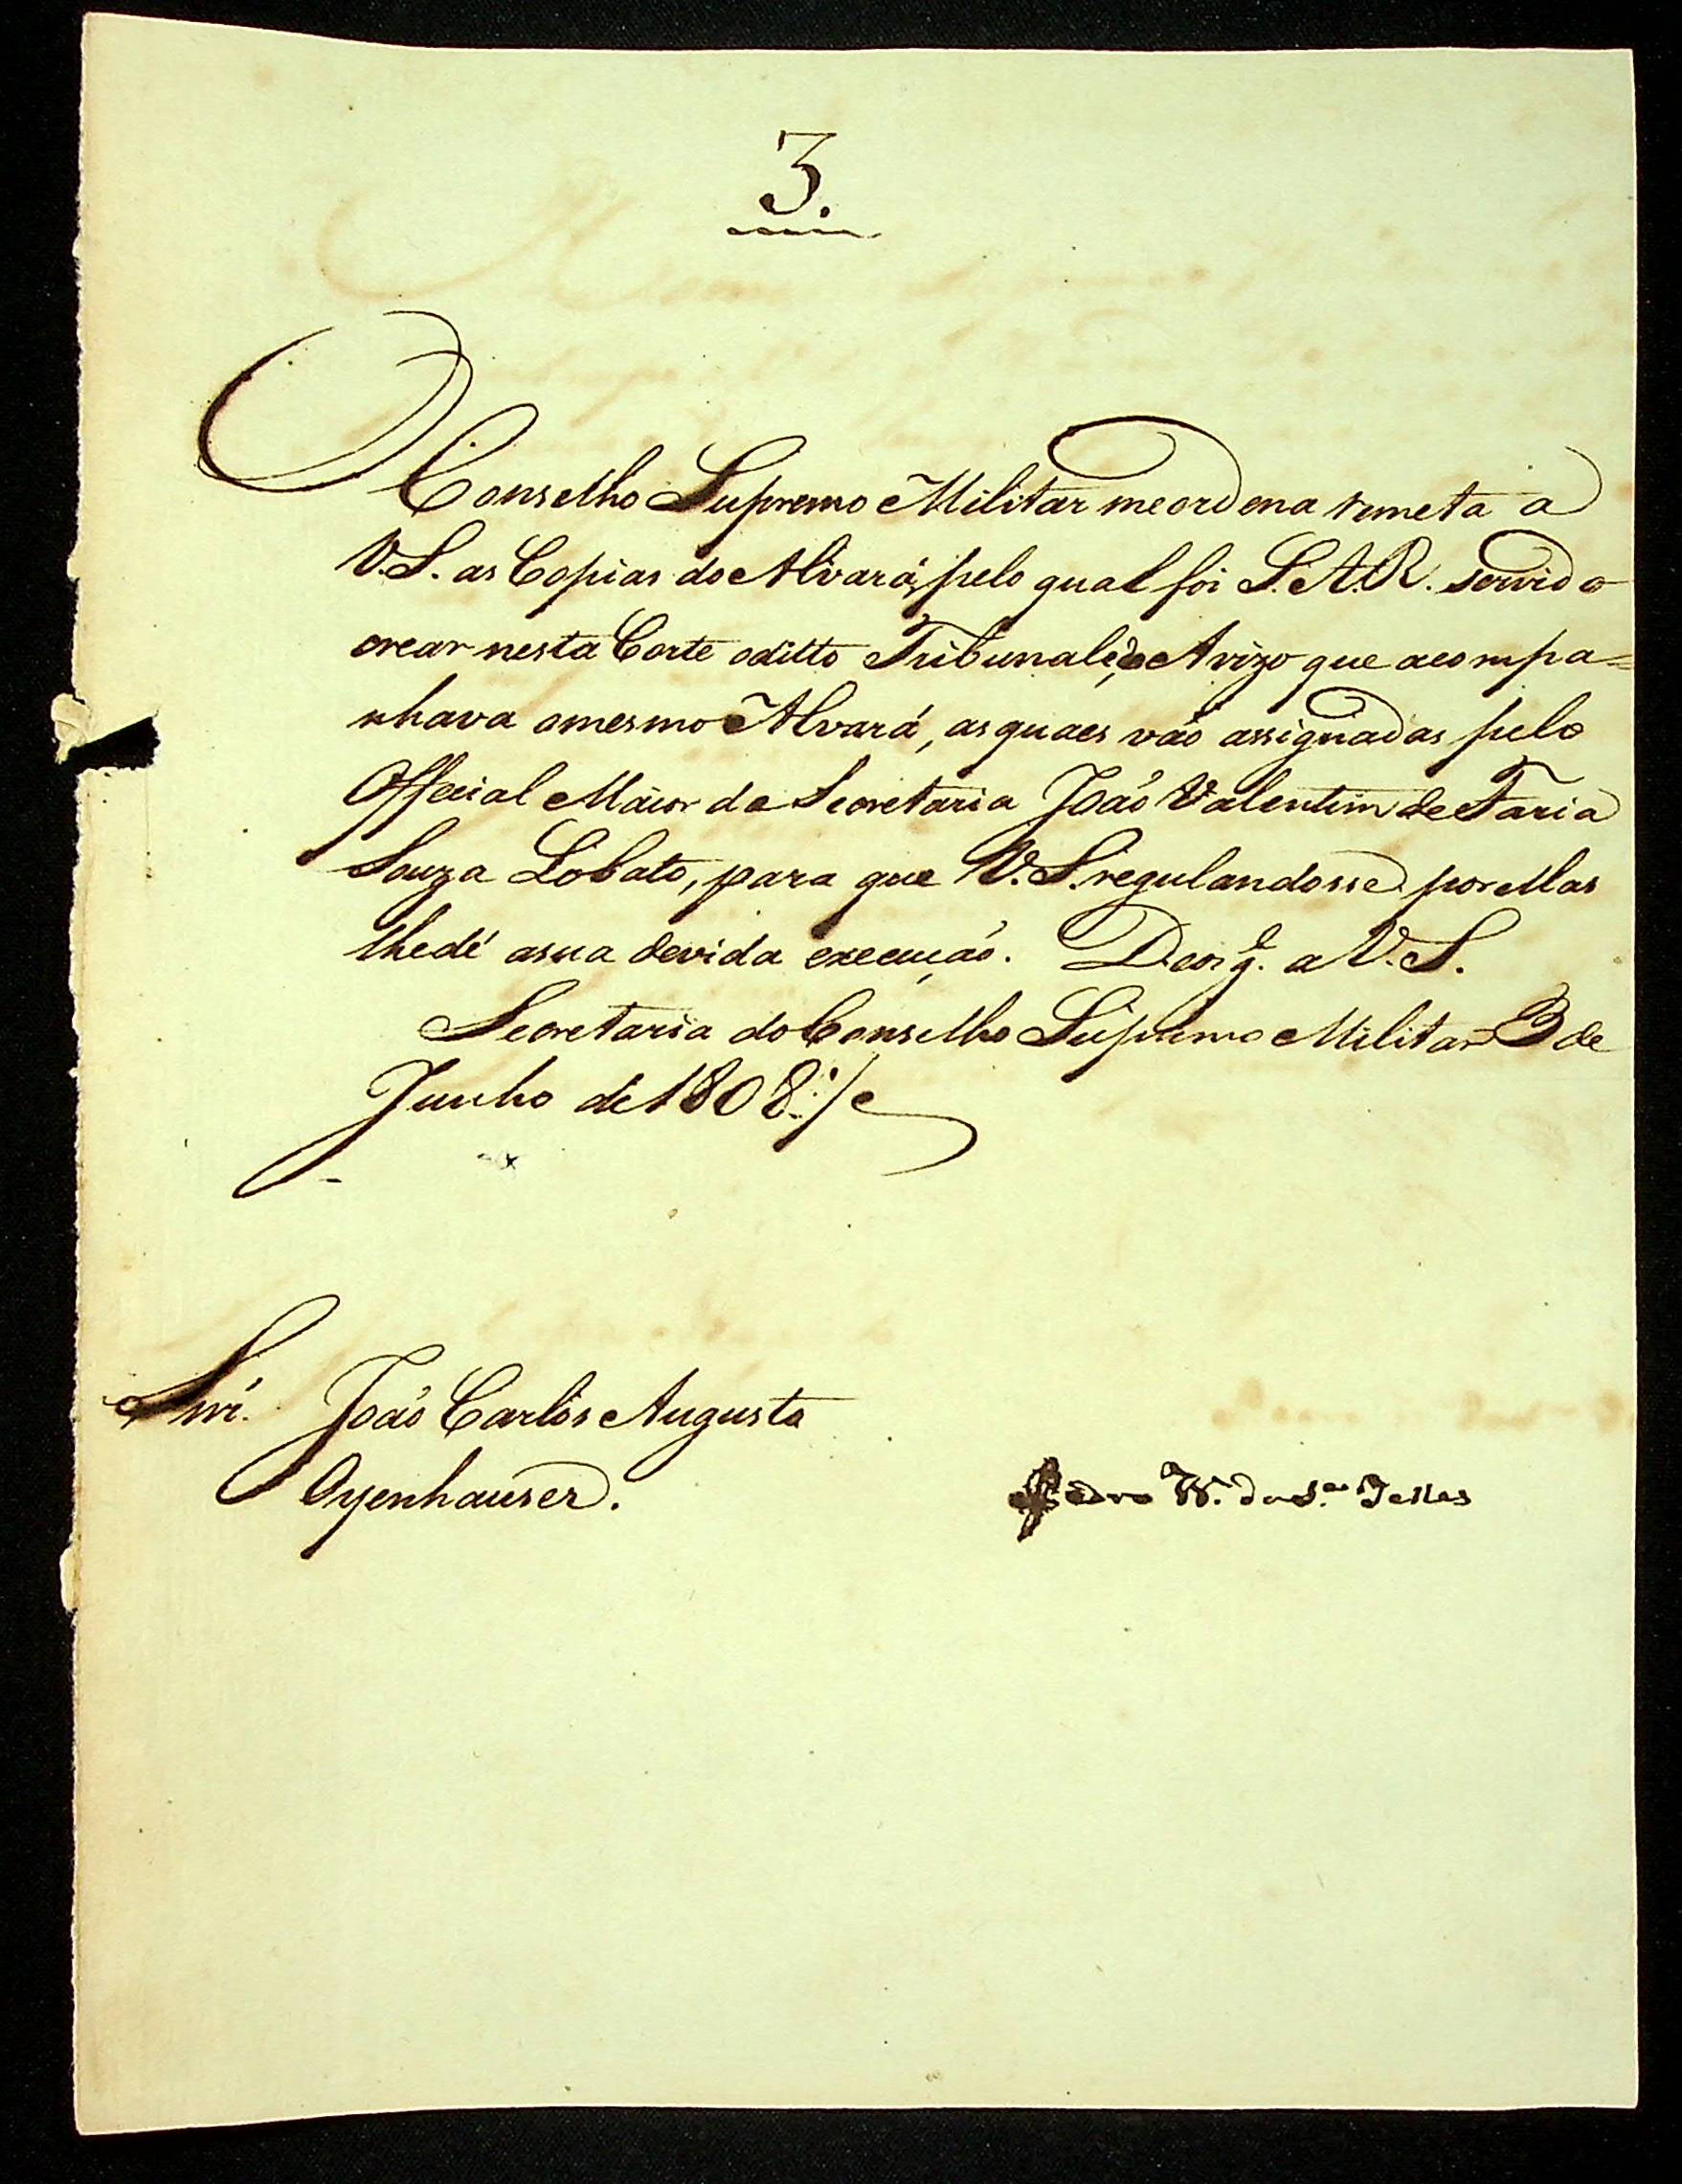 3.
O Conselho Supremo Militar me ordena remeta a
V.S. as Copias do Alvará, pelo qual foi S.A.R. servido
crear nesta Corte o ditto Tribunal, e do Avizo que acompa=
nhava o mesmo Alvará, as quaes vão assignadas pelo
Official Maior da Secretaria João Valentim de Faria
Souza Lobato, para que V.S. regulandosse por ellas
lhe dé a sua devida execução. Deos g.e a V.S.
Secretaria do Conselho Supremo Militar 3 de
Junho de 1808
Snr. João Carlos Augusto
Oyenhauser.
Pedro V. da S.a Telles